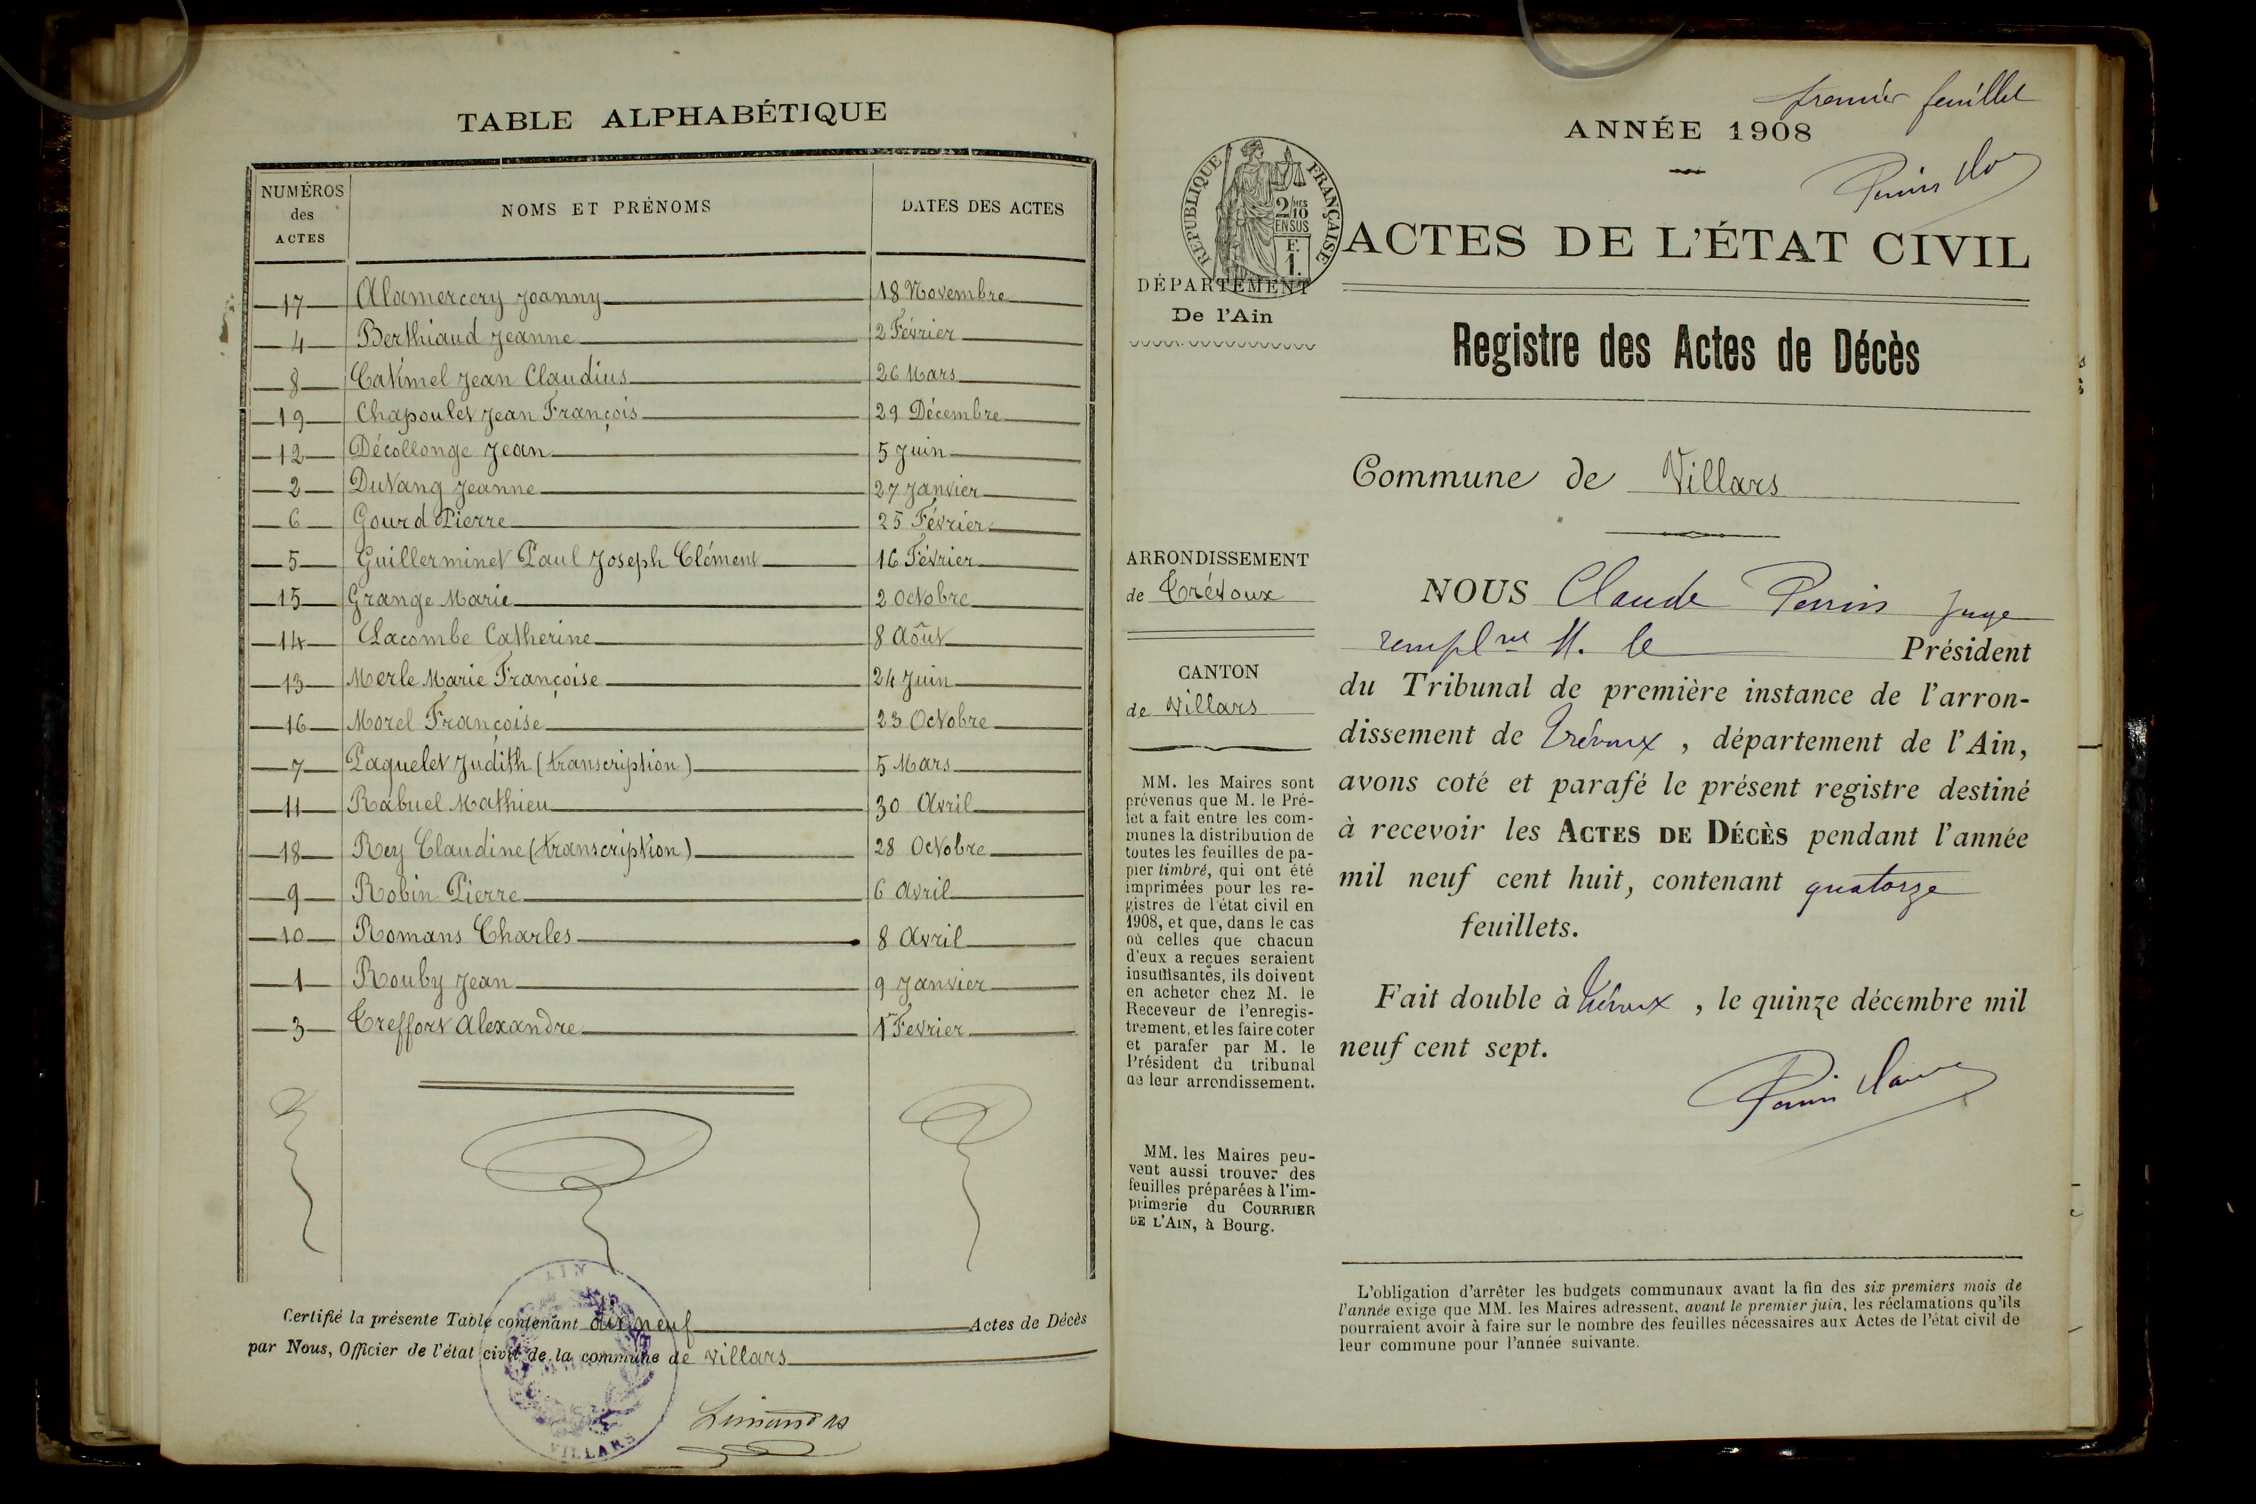 TABLE ALPHABÉTIQUE
NUMÉROS des ACTES NOMS ET PRÉNOMS DATES DES ACTES
17 Alamercery Joanny 18 Novembre
4 Berthiaud Jeanne 2 Février
8 Catimel Jean Claudius 26 Mars
19 Chapoulet Jean François 29 Décembre
12 Décollonge Jean 5 Juin
2 Dutang Jeanne 27 Janvier
6 Gourd Pierre 25 Février
5 Guillerminet Paul Joseph Clément 16 Février
15 Grange Marie 2 Octobre
14 Lacombe Catherine 8 Août
13 Merle Marie Françoise 24 Juin
16 Morel Françoise 23 Octobre
7 Paquelet Judith (transcription) 5 Mars
11 Rabuel Mathieu 30 Avril
18 Rey Claudine (transcription) 28 Octobre
9 Robin Pierre 6 Avril
10 Romans Charles 8 Avril
1 Rouby Jean 9 Janvier
3 Treffort Alexandre 1er Fevrier
Certifié la présente Table contenant dix neuf Actes de Décès
par Nous, Officier de l'état civil de la commune de Villars
AIN
VILLARS
premier feuillet
ANNÉE 1908
RÉPUBLIQUE FRANÇAISE
2/10MES
EN SUS
F.
1.
ACTES DE L'ÉTAT CIVIL
DÉPARTEMENT
De l'Ain
Registre des Actes de Décès
Commune de Villars
ARRONDISSEMENT
de Trévoux
CANTON
de Villars
MM. les Maires sont
prévenus que M. le Pré-
fet a fait entre les com-
munes la distribution de
toutes les feuilles de pa-
pier timbré, qui ont été
imprimées pour les re-
gistres de l'état civil en
1908, et que, dans le cas
où celles que chacun
d'eux a reçues seraient
insuffisantes, ils doivent
en acheter chez M. le
Receveur de l'enregis-
trement, et les faire coter
et parafer par M. le
Président du tribunal
de leur arrondissement.
MM. les Maires peu-
vent aussi trouver des
feuilles préparées à l'im-
primerie du COURRIER
DE L'AIN, à Bourg.
NOUS Claude Perrin Juge
rempl M. le Président
du Tribunal de première instance de l'arron-
dissement de Trévoux, département de l'Ain,
avons coté et parafé le présent registre destiné
à recevoir les ACTES DE DÉCÈS pendant l'année
mil neuf cent huit, contenant quatorze
feuillets.
Fait double à Trévoux, le quinze décembre mil
neuf cent sept.
Perrin Claude
L'obligation d'arrêter les budgets communaux avant la fin des six premiers mois de
l'année exige que MM. les Maires adressent, avant le premier juin, les réclamations qu'ils
pourraient avoir à faire sur le nombre des feuilles nécessaires aux Actes de l'état civil de
leur commune pour l'année suivante.